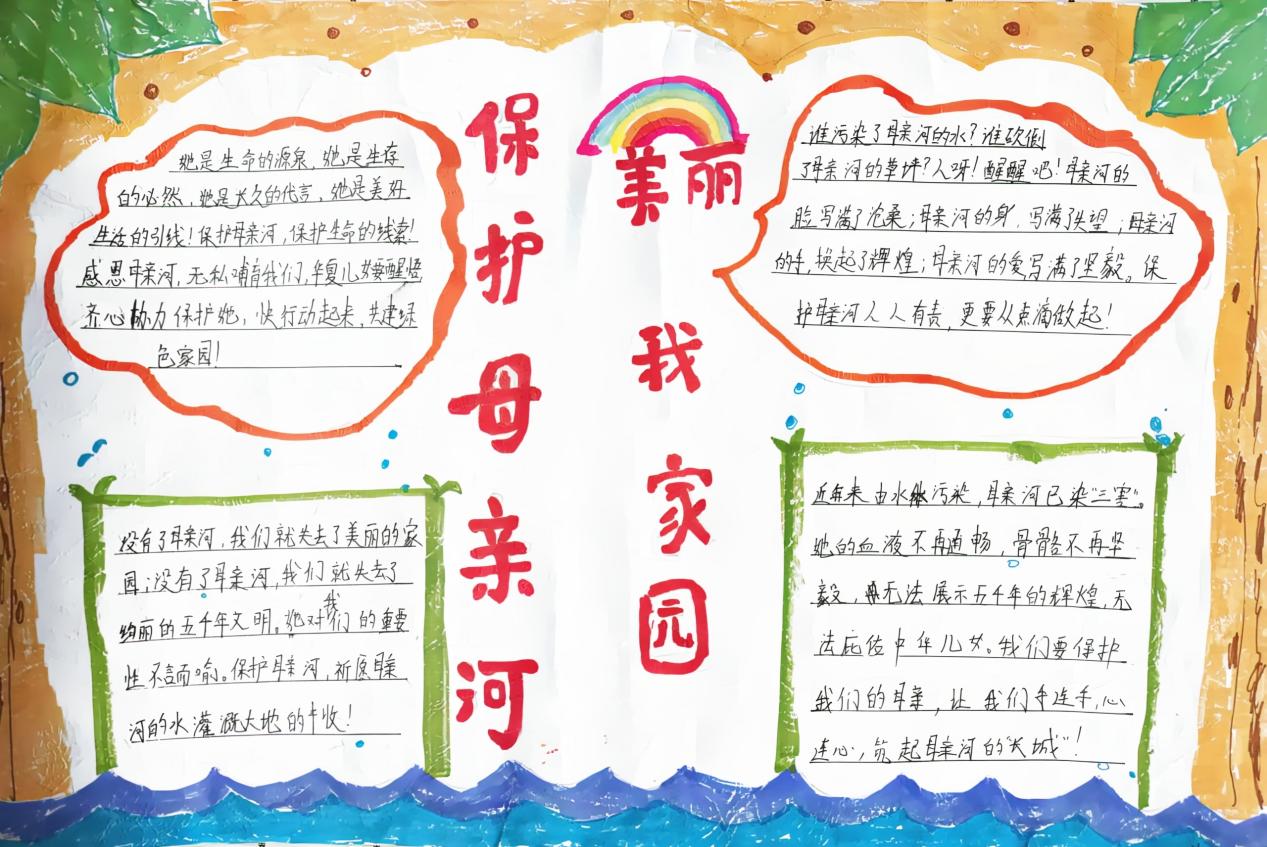 保护母亲河
美丽
我家园
她是生命的源泉，她是生存
的必然，她是永久的代言，她是美好
生活的引线！保护母亲河，保护生命的线索！
感恩母亲河，无私哺育我们，华夏儿女要醒悟
齐心协力保护她，快行动起来，共建绿
色家园！
谁污染了母亲河的水？谁砍倒
了母亲河的草坪？人呀！醒醒吧！母亲河的
脸写满了沧桑；母亲河的身，写满了失望；母亲河
的手，换起了辉煌；母亲河的爱写满了坚毅。保
护母亲河人人有责，更要从点滴做起！
没有了母亲河，我们就失去了美丽的家
园；没有了母亲河，我们就失去了
绚丽的五千年文明。她对我们的重要
性不言而喻。保护母亲河，祈愿母亲
河的水灌溉大地的丰收！
近年来由水体污染，母亲河已染“三害”。
她的血液不再通畅，骨骼不再坚
毅，无法展示五千年的辉煌，无
法庇佑中华儿女。我们要保护
我们的母亲，让我们手连手，心
连心，筑起母亲河的“长城”！